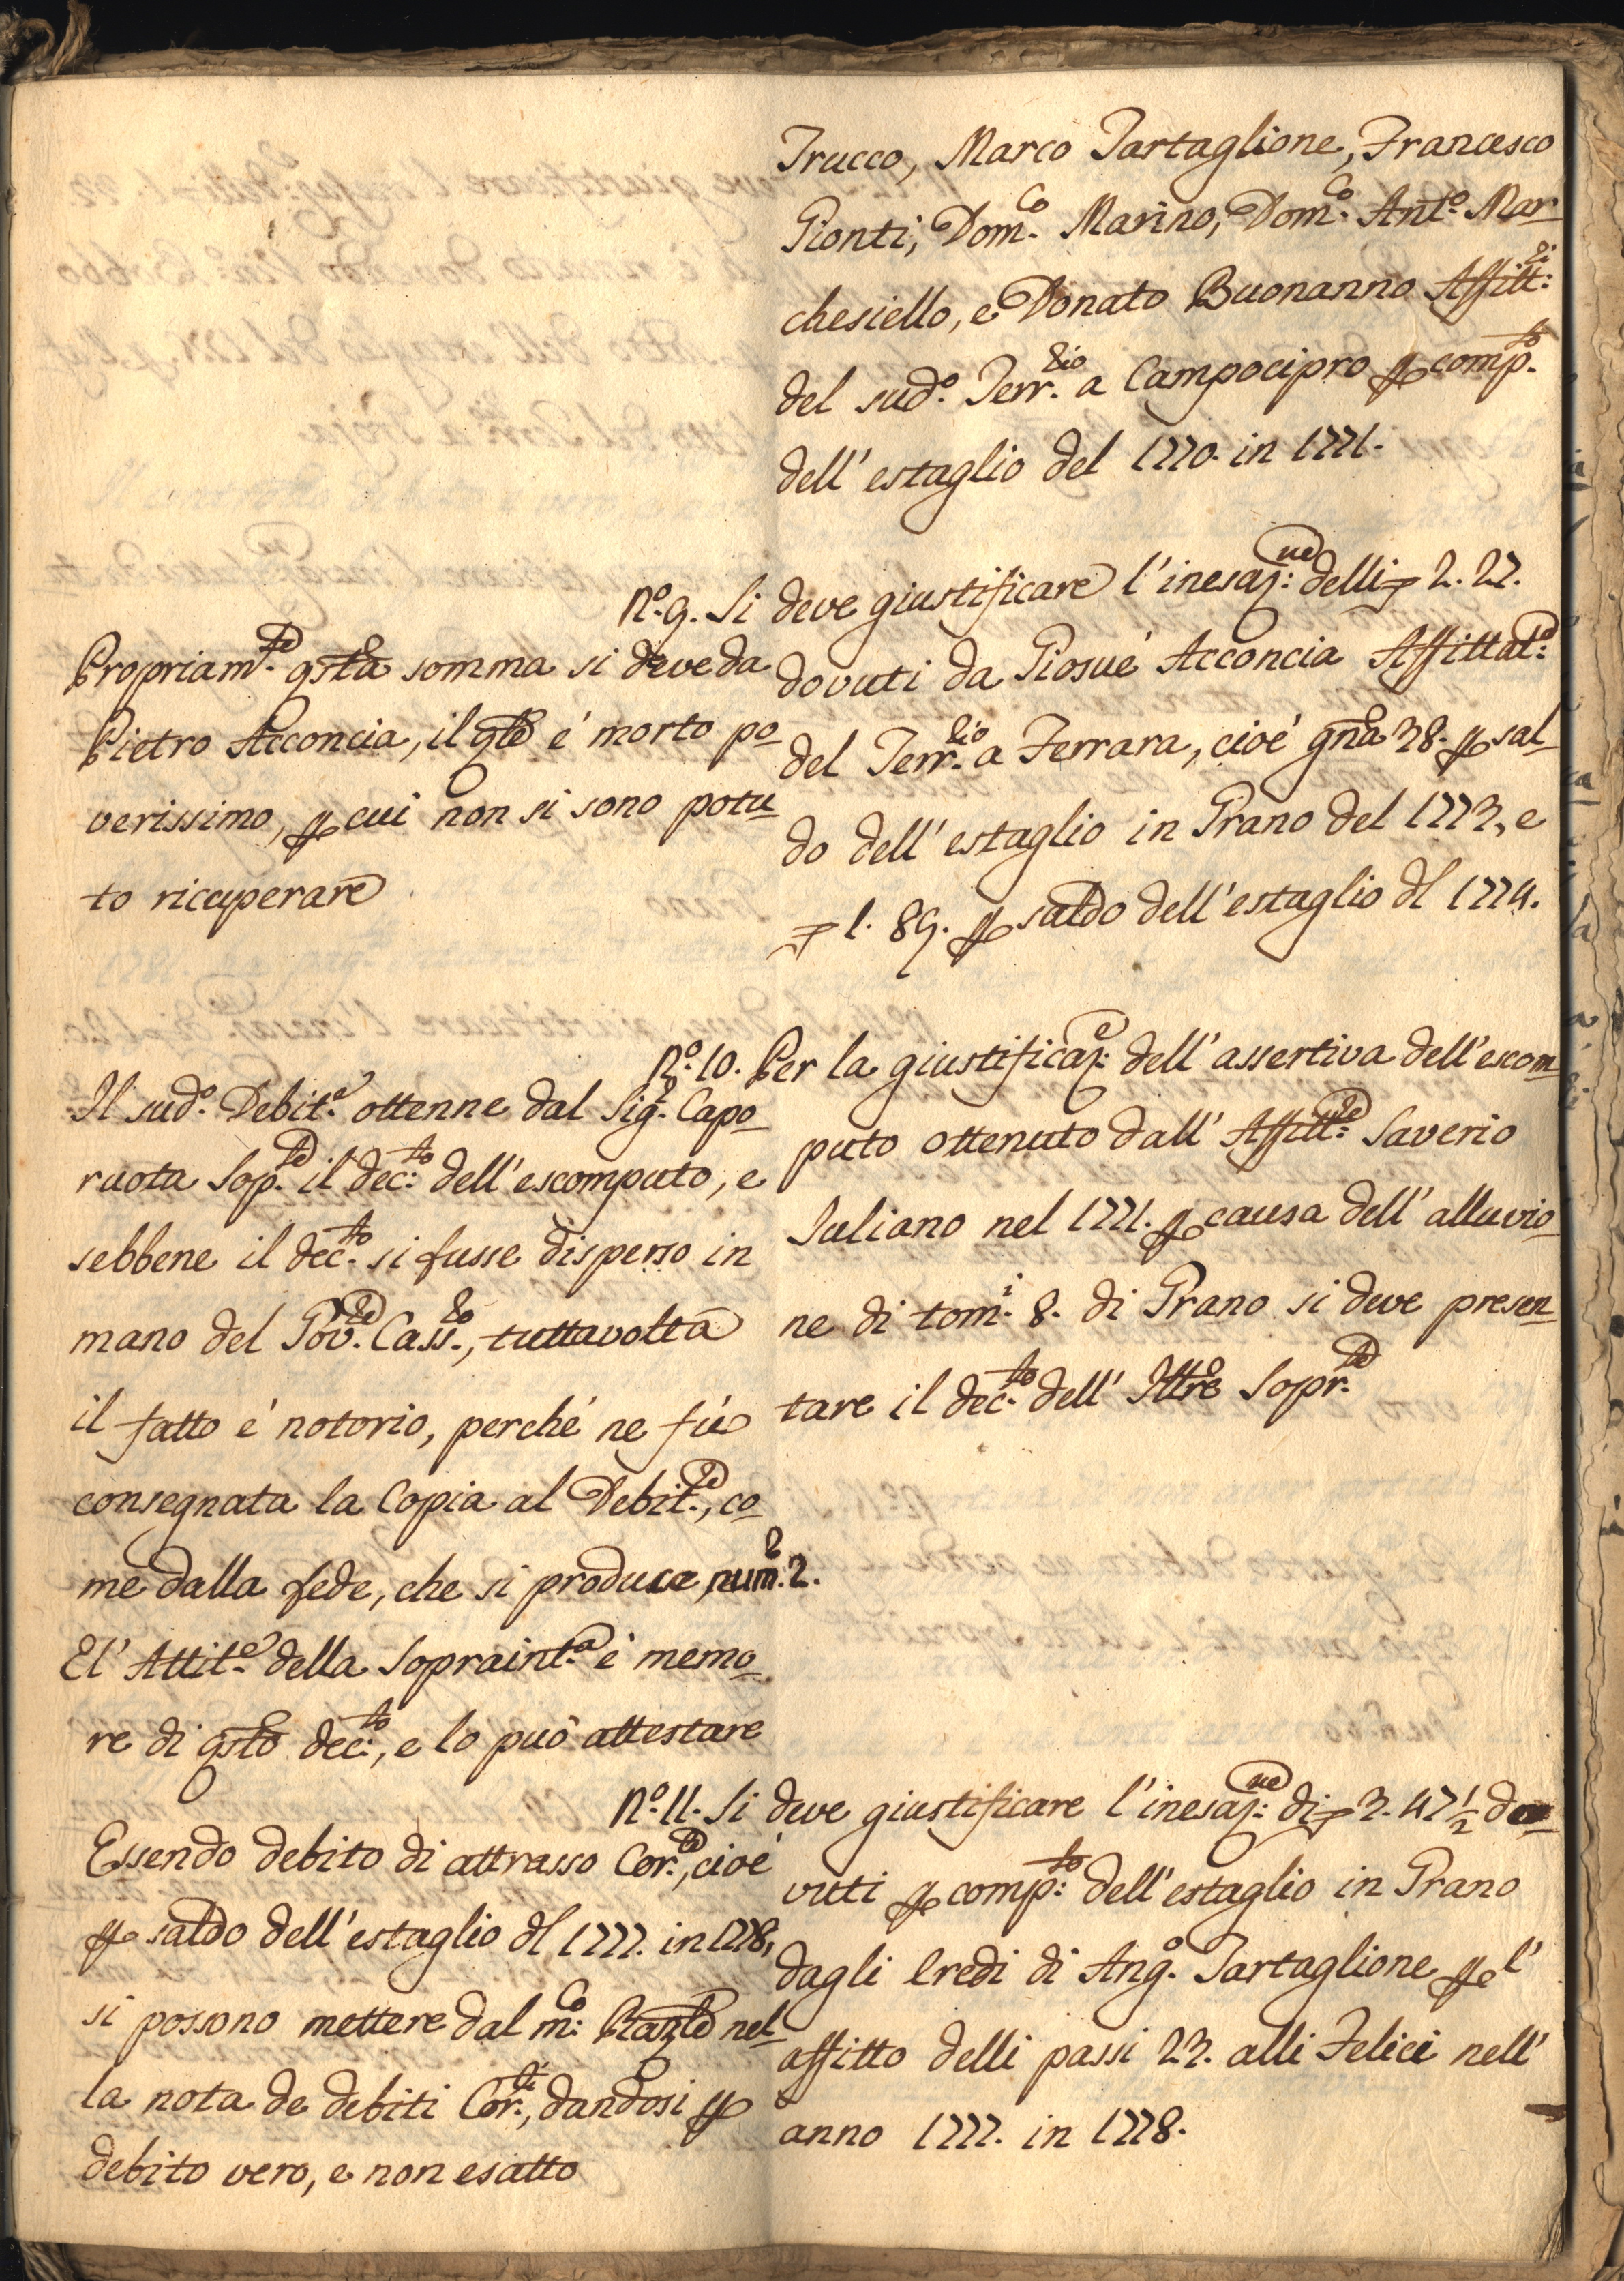 Trucco, Marco Tartaglione, Francesco
Gionti, Dom.co Marino, Dom.co Ant.o Mar-
chesiello, e Donato Buonanno Affitt:ri
del sud.o Terr.rio a Campocipro p comp.to
dell' estaglio del 1770. in 1771.
N.o 9. Si deve giustificare l'inesaz:ne delli 2. 27.
dovuti da Giosuè Acconcia Affittat:e
del Terr.rio a Ferrara, cioè gna 38. p sal-
do dell' estaglio in Grano del 1773, e
1. 89. p saldo dell' estaglio dl 1774.
Propriam.te qsta somma si deve da
Pietro Acconcia, il qle è morto po-
verissimo, p cui non si sono potu-
to ricuperare
N.o 10. Per la giustificaz.e dell' assertiva dell' escom-
puto ottenuto dall' Affitt:re Saverio
Iuliano nel 1771. p causa dell' alluvio-
ne di tom.i 8. di Grano si deve presen-
tare il dec.to dell' Illre Sopr.te
Il sud.o Debit.e ottenne dal Sig.r Capo-
ruota Sop.te il dec:to dell' escomputo, e
sebbene il dec.to si fusse disperso in
mano del Gov.re Cass.ro, tuttavolta
il fatto è notorio, perchè ne fù
consegnata la Copia al Debit.re, co-
me dalla fede, che si produce num.2.
E l' Attit.e della Sopraint.a è memo-
re di qsto dec:to, e lo può attestare
N.o 11. Si deve giustificare l'inesaz:ne di 3. 47 1/2 do-
vuti p comp:to dell' estaglio in Grano
dagli Eredi di Ang.o Tartaglione p l'
affitto delli passi 23. alli Felici nell'
anno 1777. in 1778.
Essendo debito di attrasso Cor.te, cioè
p saldo dell' estaglio dl 1777. in 1778,
si possono mettere dal m:co Razle nel-
la nota de debiti Cor.ti, dandosi p
debito vero, e non esatto